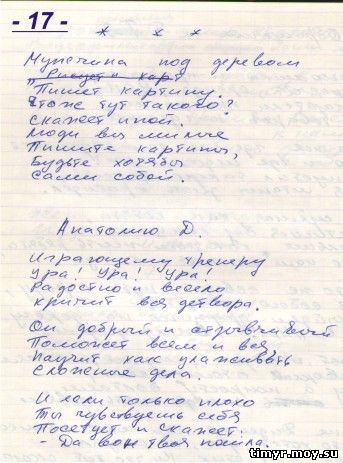 - 17 -
* * *
Мужчина под деревом
Рисует карт
Пишет картину.
Что же тут такого?
Скажет иной.
Люди вы милые
Пишите картины,
Будьте хотябы
Сами собой.
Анатолию Д.
Играющему тренеру
Ура! Ура! Ура!
Радостно и весело
кричит вся детвора.
Он добрый и отзывчивый
Поможет всем и вся
Научит как улаживать
Сложные дела.
И если только плохо
Ты чувствуешь себя
Посетует и скажет.
- Да вон твоя пошла.
timyr.moy.su